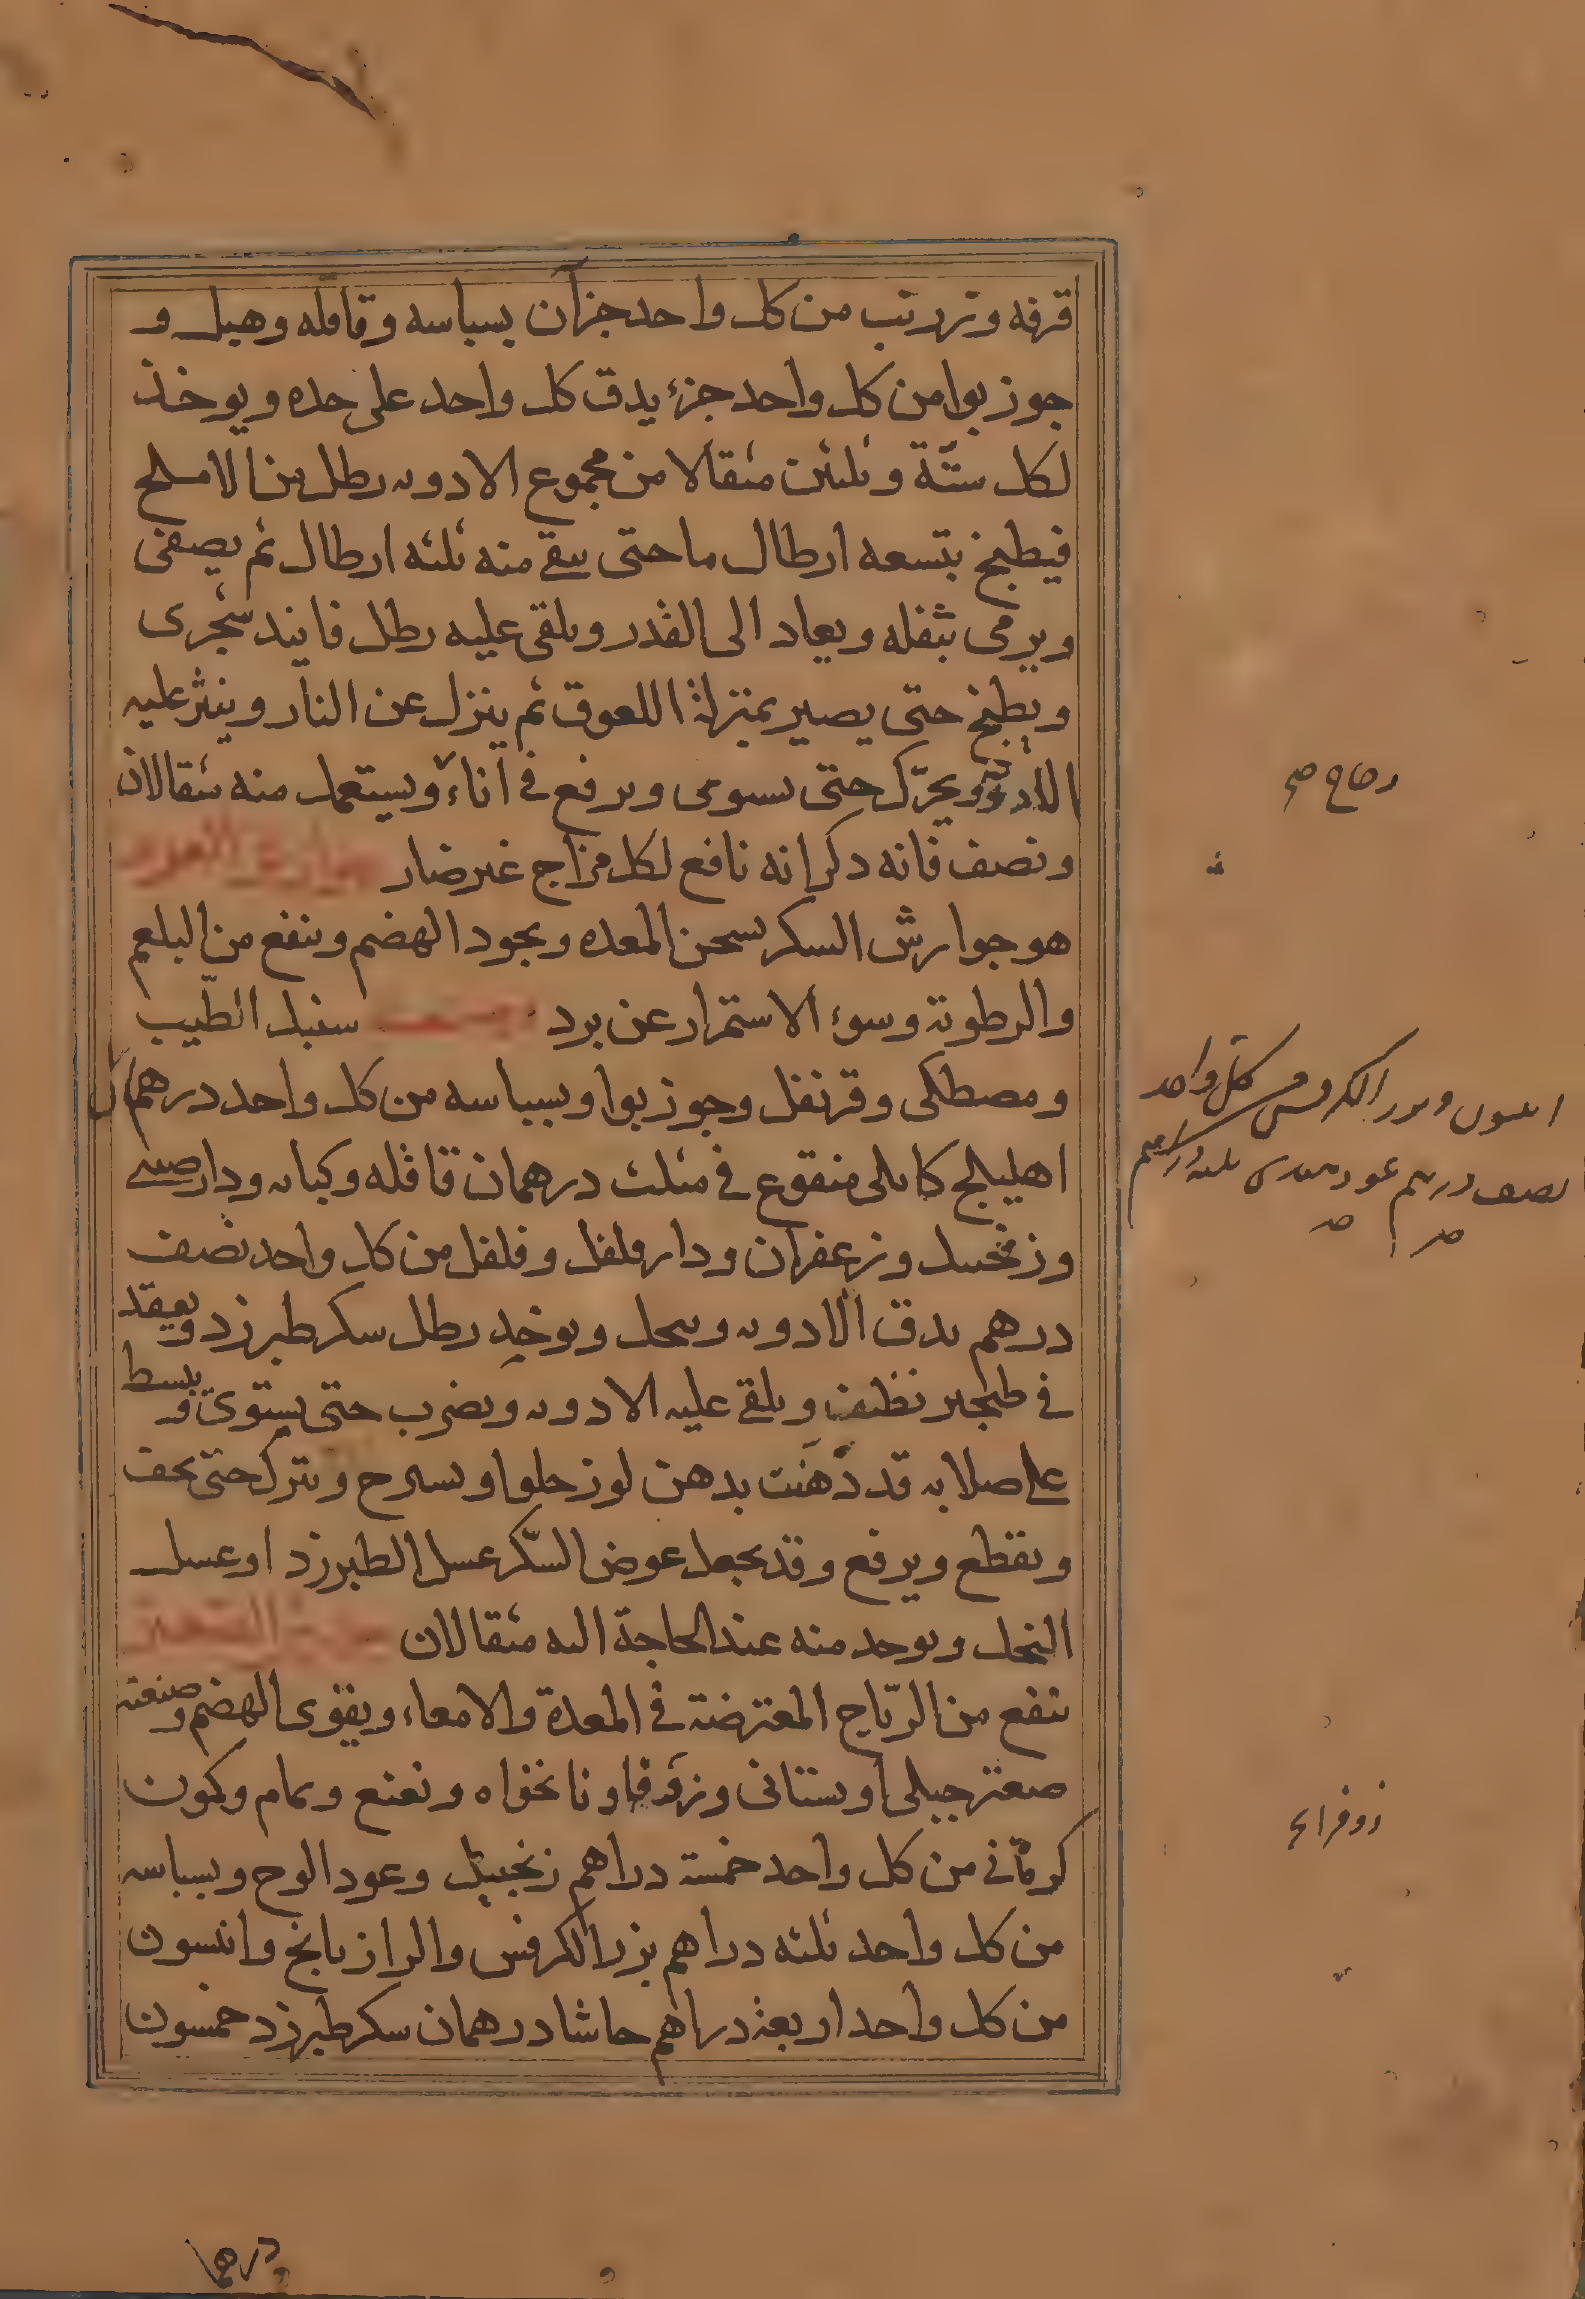 قرفه وزرنب من كل واحد جزآن بسباسه وقاقله وهيل و
جوزبوا من كل واحد جزء يدق كل واحد على حده ويوخذ
لكل ستة وثلثين مثقالا من مجموع الادويه رطل من الاملج
فيطبخ بتسعه ارطال ما حتى يبقى منه ثلثه ارطال ثم يصفى
ويرمى بثفله ويعاد الى القدر ويلقى عليه رطل فانيد سجرى
ويطبخ حتى يصير بمنزلة اللعوق ثم ينزل عن النار وينثر عليه
الادويه ويحرّك حتى يسوى ويرفع في اناء ويستعمل منه مثقالان
ونصف فانه ذكر انه نافع لكل مزاج غير ضار جوارش العود
هو جوارش السكر يسخن المعده ويجود الهضم وينفع من البلغم
والرطوبة وسوء الاستمرار عن برد سنبل الطّيب
ومصطكى وقرنفل وجوزبوا وبسباسه من كل واحد درهمان
اهليلج كابلى منقوع في مثلث درهمان قاقله وكبابه ودارصينى
وزنجبيل وزعفران ودارفلفل وفلفل من كل واحد نصف
درهم يدق الادويه وينخل ويوخذ رطل سكر طبرزد ويعقد
في طنجير نظيف ويلقى عليه الادويه ويضرب حتى يستوى ويبسط
على صلايه قد دهنت بدهن لوز حلو او بسيرج ويترك حتى يجف
ويقطع ويرفع وقد يجعل عوض السّكر عسل الطبرزد او عسل
النحل ويوخذ منه عند الحاجة اليه مثقالان
ينفع من الرّياح المعترضة في المعدة والامعاء ويقوى الهضم وصنعته
صعتر جبلى او بستانى وزوفا ونانخواه ونعنع ونمام وكمون
كرمانى من كل واحد خمسة دراهم زنجبيل وعود الوج وبسباسه
من كل واحد ثلثه دراهم بزر الكرفس والرازيانج وانيسون
من كل واحد اربعة دراهم حاشا درهمان سكر طبرزد خمسون
انيسون وبزر الكرفس من كل واحد
نصف درهم عود هندى ثلثة دراهم
درهما